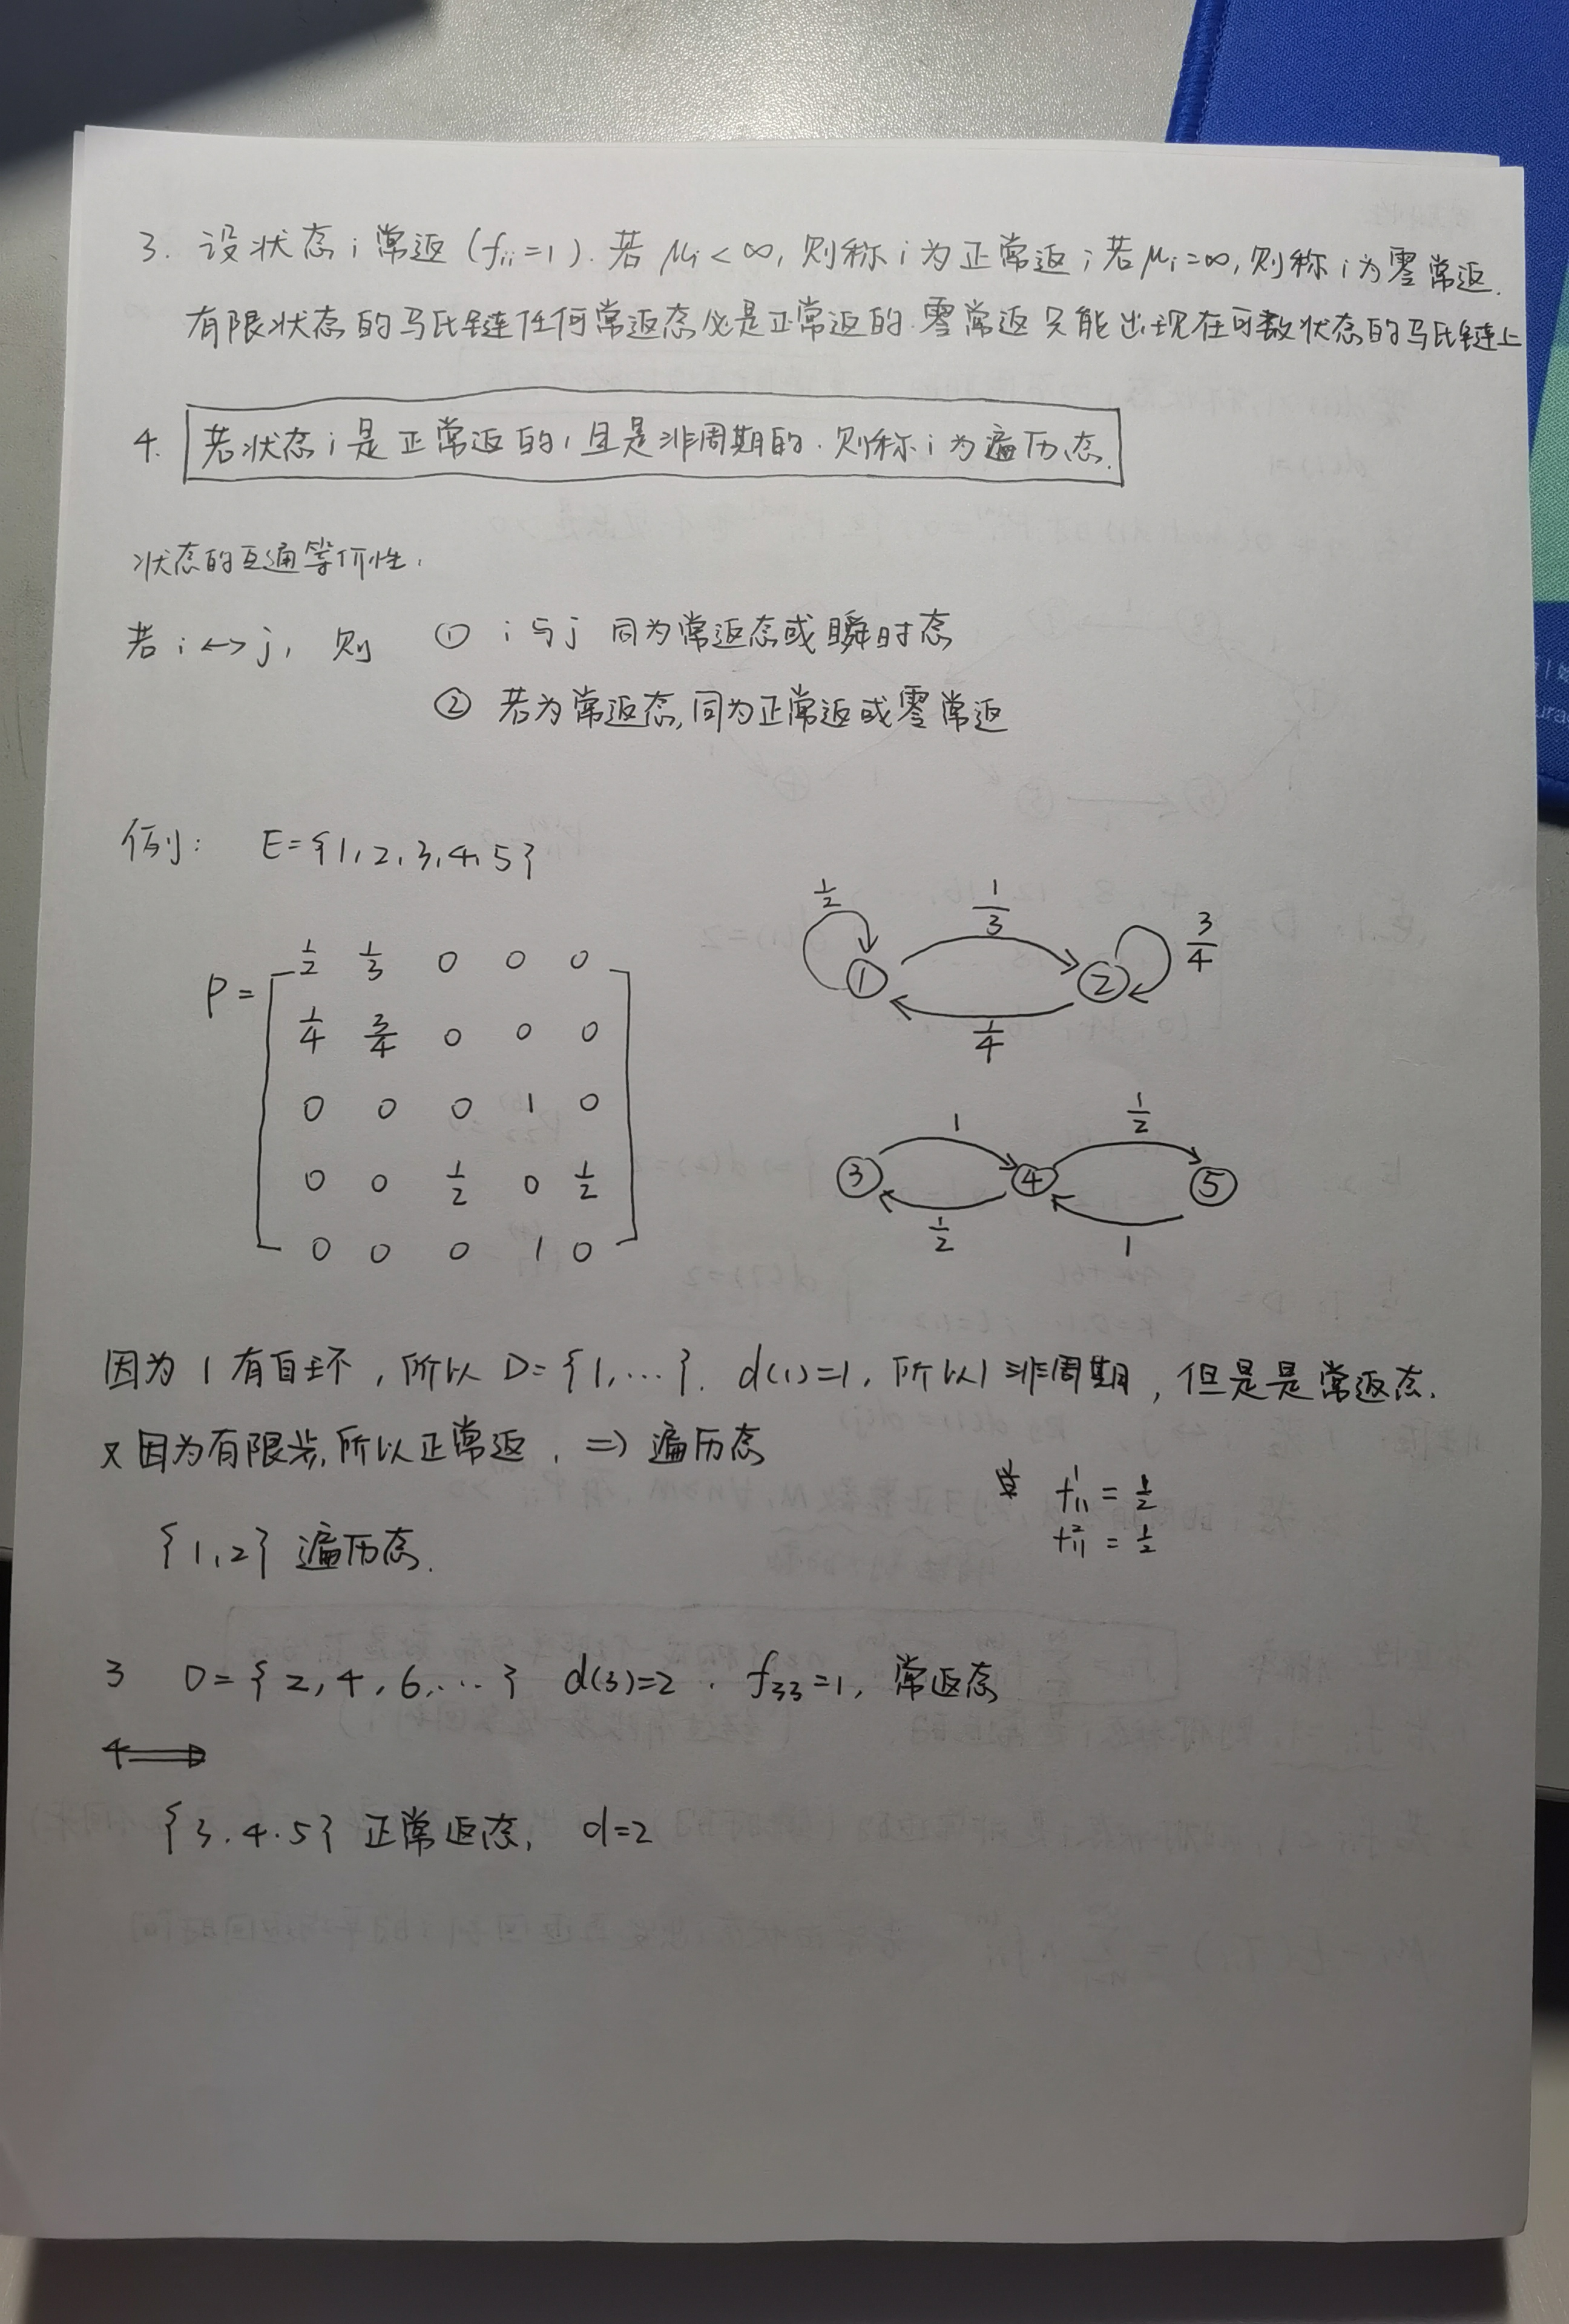 3. 设状态 i 常返 (fii=1). 若 μi<∞, 则称 i 为正常返; 若 μi=∞, 则称 i 为零常返.
有限状态的马氏链任何常返态必是正常返的. 零常返只能出现在可数状态的马氏链上
4. 若状态 i 是正常返的, 且是非周期的. 则称 i 为遍历态.
状态的互通等价性.
若 i ↔ j, 则 ① i 与 j 同为常返态或瞬时态
② 若为常返态, 同为正常返或零常返
例: E={1,2,3,4,5}
1/2 1/3 3/4
① ②
1/4
P= 1/2 1/3 0 0 0
1/4 3/4 0 0 0
0 0 0 1 0
0 0 1/2 0 1/2
0 0 0 1 0
1 1/2
③ ④ ⑤
1/2 1
因为 1 有自环, 所以 D={1,…}. d(1)=1, 所以 1 非周期, 但是是常返态.
又因为有限步, 所以正常返. ⇒ 遍历态
f¹11 = 1/2
f²11 = 1/2
{1,2} 遍历态.
3 D={2,4,6,…} d(3)=2. f33=1, 常返态
4 ⇒
{3.4.5} 正常返态, d=2